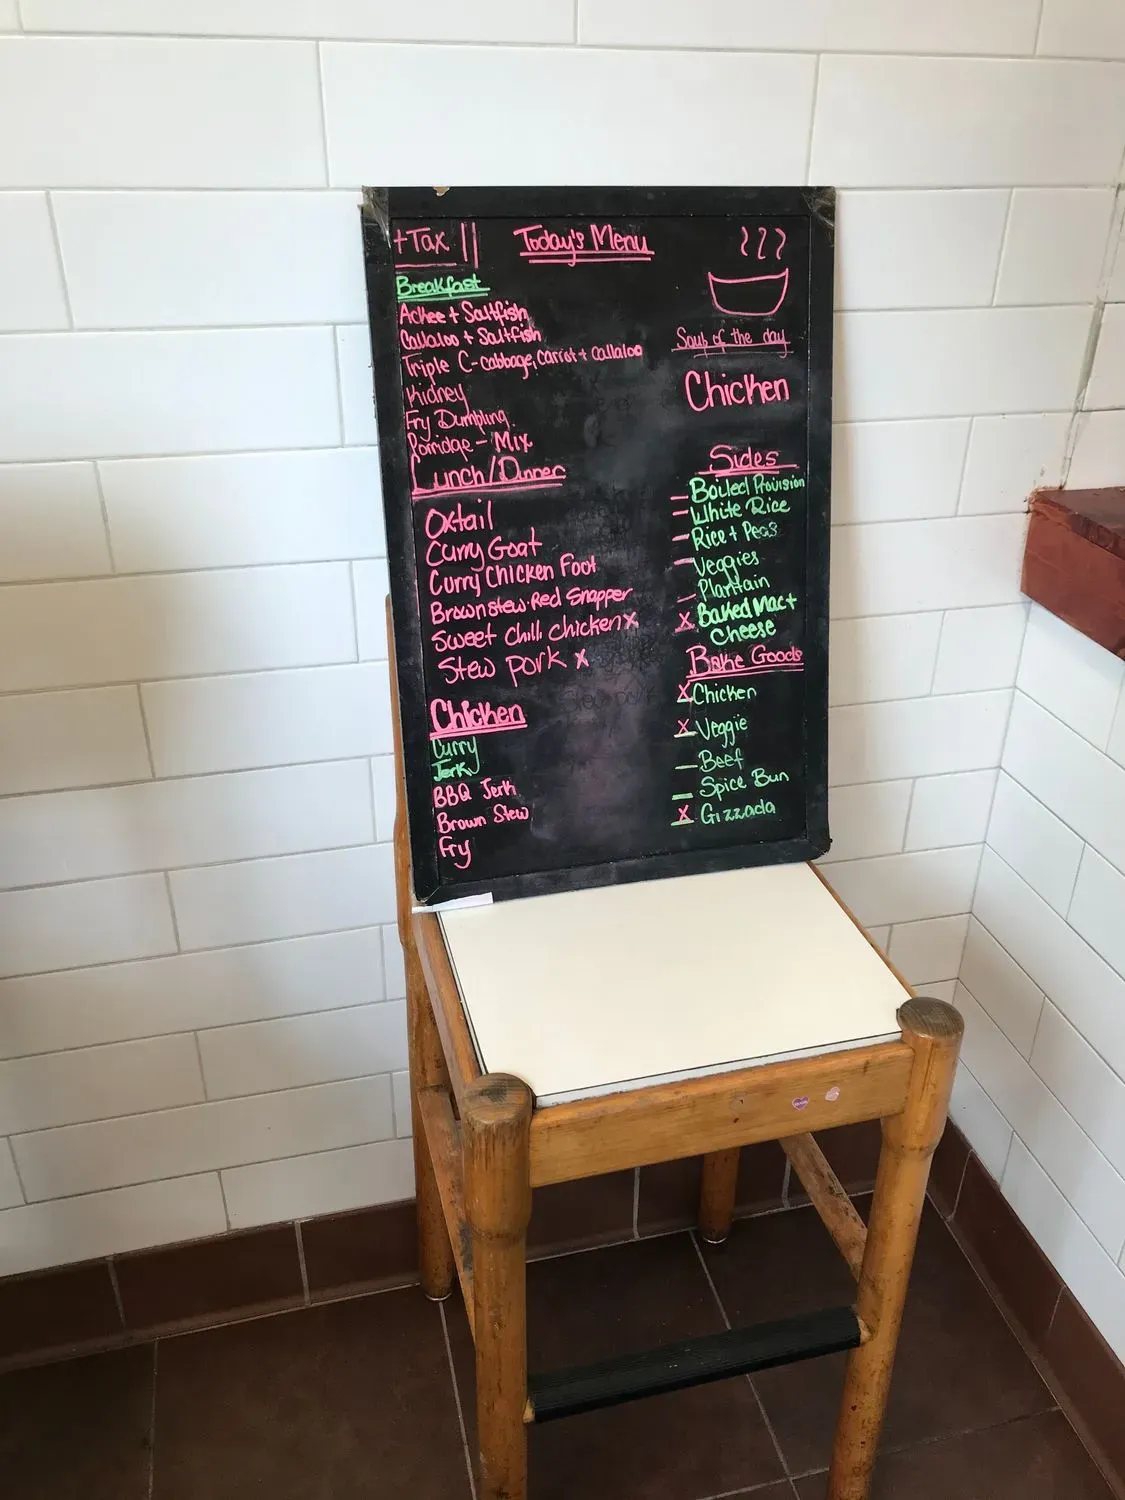 +Tax ||
Today's Menu
Breakfast
Ackee + Saltfish
Callaloo + Saltfish
Triple C-cabbage, carrot + callaloo
Kidney
Fry Dumpling
Porridge - Mix
Lunch/Dinner
Oxtail
Curry Goat
Curry Chicken Foot
Brownstew Red Snapper
Sweet Chilli chicken x
Stew pork x
Chicken
Curry
Jerk
BBQ Jerk
Brown Stew
Fry
Soup of the day
Chicken
Sides
- Boiled Provision
- White Rice
- Rice + Peas
- Veggies
- Plantain
x Baked Mac +
Cheese
Bake Goods
x Chicken
x Veggie
- Beef
- Spice Bun
x Gizzada